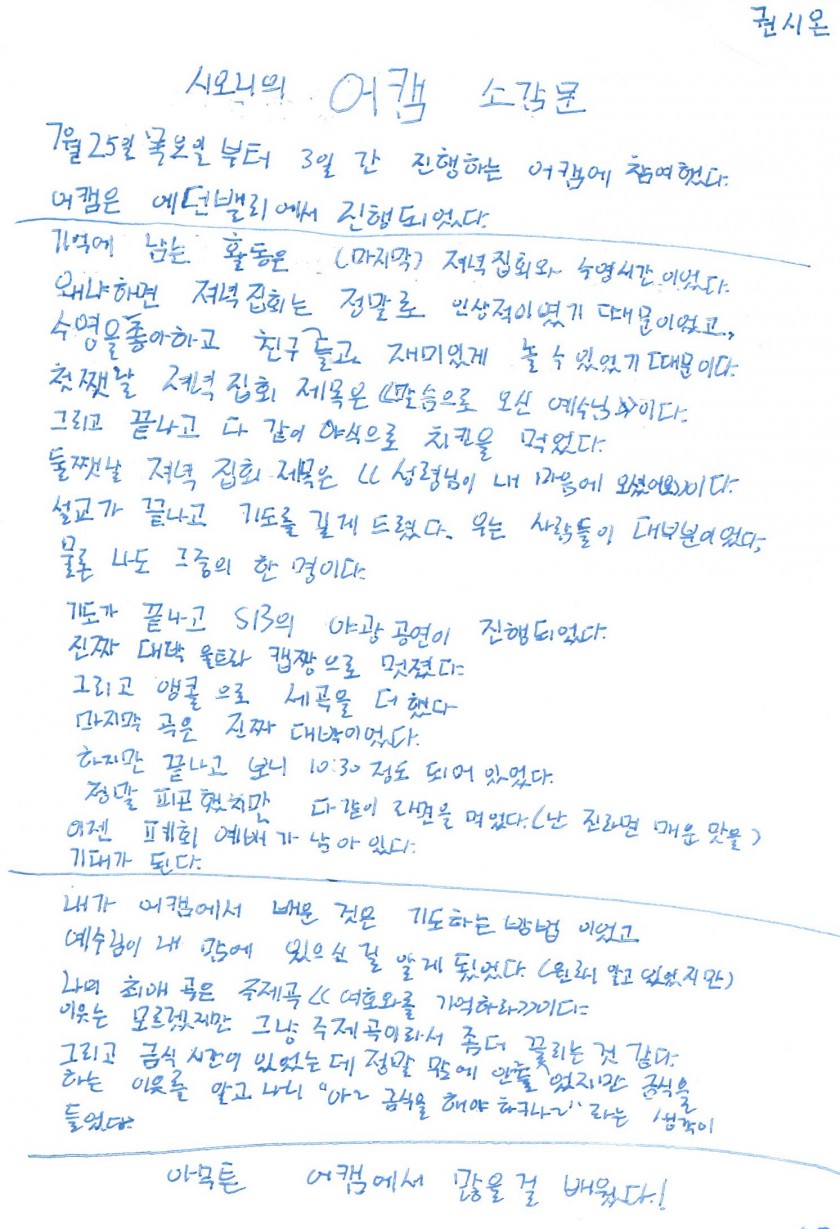 권시온
시오니의 어캠 소감문
7월25일 목요일 부터 3일 간 진행하는 어캠에 참여했다.
어캠은 에덴밸리에서 진행되었다.
기억에 남는 활동은 (마지막) 저녁집회와 수영시간 이었다.
왜냐하면 저녁집회는 정말로 인상적이였기 때문이었고,
수영을 좋아하고 친구들고 재미있게 놀 수 있었기 때문이다.
첫쨋날 저녁 집회 제목은 《말씀으로 오신 예수님》이다.
그리고 끝나고 다 같이 야식으로 치킨을 먹었다.
둘쨋날 저녁 집회 제목은 《성령님이 내 마음에 오셨어요》이다.
설교가 끝나고 기도를 길게 드렸다. 우는 사람들이 대부분이었다,
물론 나도 그중의 한 명이다.
기도가 끝나고 SB의 야광 공연이 진행되었다.
진짜 대박 울트라 캡짱으로 멋졌다.
그리고 앵콜 으로 세곡을 더 했다
마지막 곡은 진짜 대박이었다.
하지만 끝나고 보니 10:30 정도 되어 있었다.
정말 피곤했지만 다같이 라면을 먹었다.(난 진라면 매운 맛을)
이젠 폐회 예배가 남아 있다.
기대가 된다.
내가 어캠에서 배운 것은 기도하는 방법 이었고
예수님이 내 맘에 있으신 걸 알게 됬었다 (원래 알고 있었지만)
나의 최애 곡은 주제곡 《여호와를 기억하라》이다.
이웃는 모르겠지만 그냥 주제곡이라서 좀더 끌리는 것 같다.
그리고 금식 시간이 있었는데 정말 맘에 안들었지만 금식을
하는 이웃를 알고 나니 "아~ 금식을 해야 하구나~" 라는 생각이
들었다.
아무튼 어캠에서 많을걸 배웠다.!